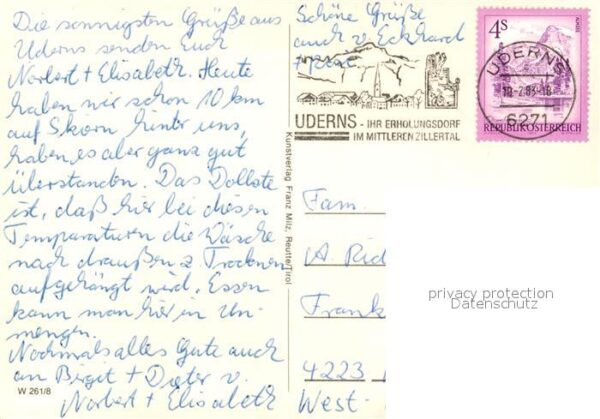 Die sonnigsten Grüße aus
Uderns senden Euch
Norbert + Elisabeth. Heute
haben wir schon 10 km
auf Skiern hinter uns,
haben es aber ganz gut
überstanden. Das Dollste
ist, daß hier bei diesen
Temparaturen die Wäsche
nach draußen z. Trocknen
aufgehängt wird. Essen
kann man hier in Un-
mengen.
Nochmals alles Gute auch
an Birgit + Dieter v.
Norbert + Elisabeth
W 261/8
Kunstverlag Franz Milz, Reutte/Tirol
Schöne Grüße
auch v. Eckhard
4S
REPUBLIK ÖSTERREICH
UDERNS
18-2.83-18
6271
UDERNS - IHR ERHOLUNGSDORF
IM MITTLEREN ZILLERTAL
Fam.
A. Rid
Frank
4223
West-
privacy protection
Datenschutz